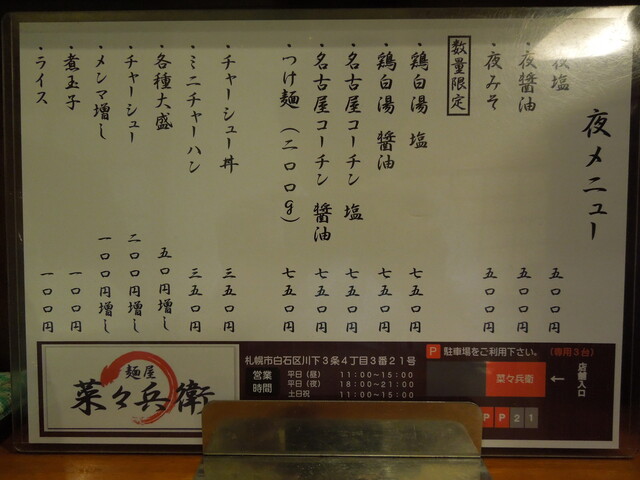 夜メニュー
夜塩 五〇〇円
・夜醤油 五〇〇円
・夜みそ 五〇〇円
数量限定
・鶏白湯 塩 七五〇円
・鶏白湯 醤油 七五〇円
・名古屋コーチン 塩 七五〇円
・名古屋コーチン 醤油 七五〇円
・つけ麺(二〇〇g) 七五〇円
・チャーシュー丼 三五〇円
・ミニチャーハン 三五〇円
・各種大盛 五〇円増し
・チャーシュー 二〇〇円増し
・メンマ増し 一〇〇円増し
・煮玉子 一〇〇円
・ライス 一〇〇円
麺屋
菜々兵衛
札幌市白石区川下3条4丁目3番21号
営業時間
平日(昼) 11:00~15:00
平日(夜) 18:00~21:00
土日祝 11:00~15:00
P 駐車場をご利用下さい。(専用5台)
菜々兵衛
← 店舗入口
P P 2 1